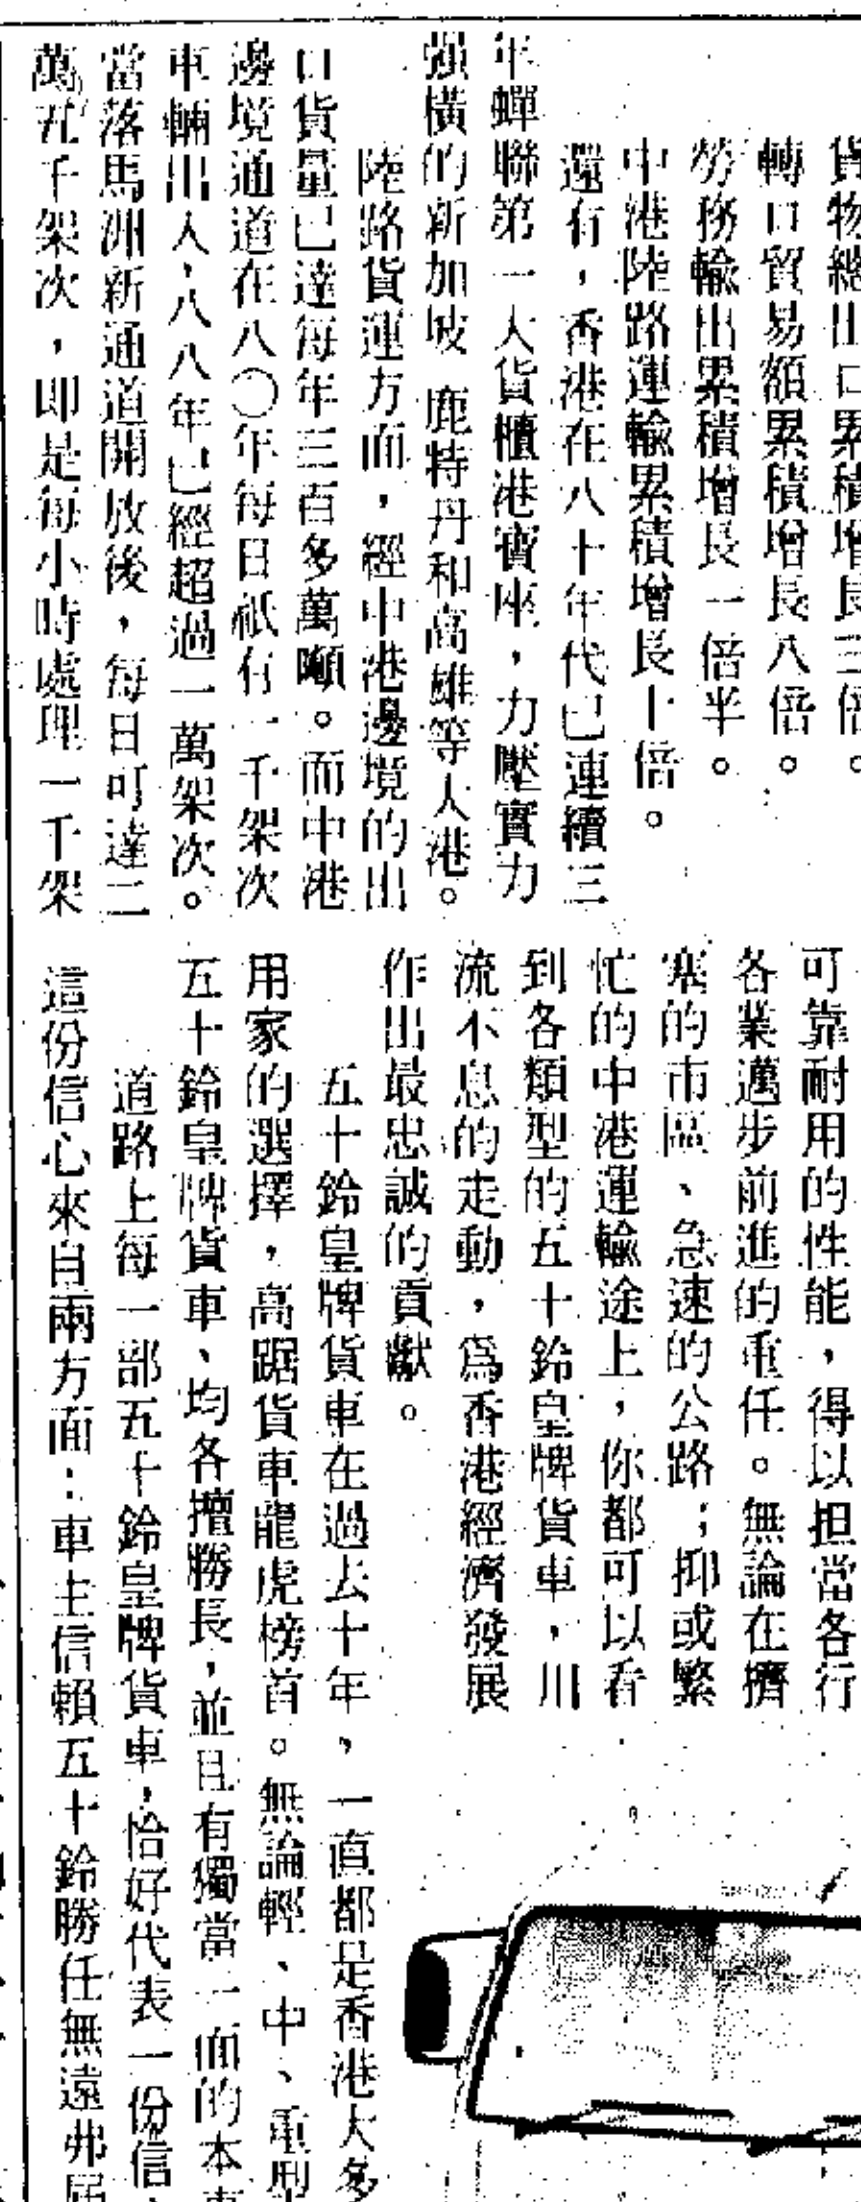 貨物總出口累積增長三倍。
轉口貿易額累積增長八倍。
勞務輸出累積增長一倍半。
中港陸路運輸累積增長十倍。
還有，香港在八十年代已連續三
年蟬聯第一大貨櫃港寶座，力壓實力
强橫的新加坡 鹿特丹和高雄等大港。
陸路貨運方面，經中港邊境的出
口貨量已達每年三百多萬噸。而中港
邊境通道在八〇年每日祇有一千架次
車輛出入，八八年已經超過一萬架次。
當落馬洲新通道開放後，每日可達二
萬五千架次，即是每小時處理一千架
可靠耐用的性能，得以担當各行
各業邁步前進的重任。無論在擠
塞的市區、急速的公路；抑或繁
忙的中港運輸途上，你都可以看
到各類型的五十鈴皇牌貨車，川
流不息的走動，爲香港經濟發展
作出最忠誠的貢獻。
五十鈴皇牌貨車在過去十年，一直都是香港大多
用家的選擇，高踞貨車龍虎榜首。無論輕、中、重型
五十鈴皇牌貨車、均各擅勝長，並且有獨當一面的本
道路上每一部五十鈴皇牌貨車，恰好代表一份信
這份信心來自兩方面：車主信賴五十鈴勝任無遠弗屆